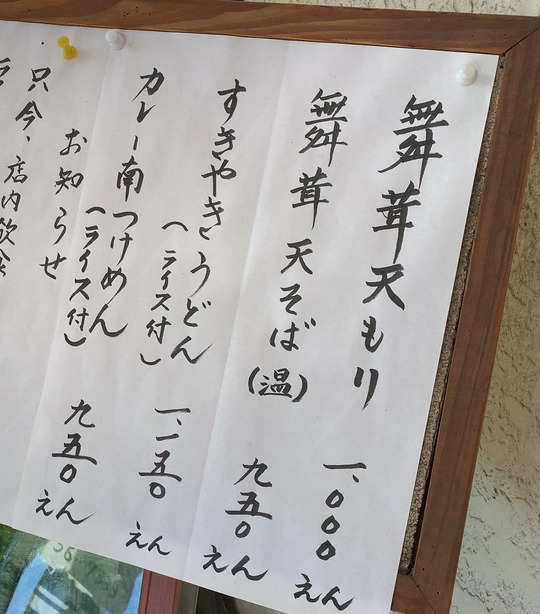 舞茸天もり 一、〇〇〇えん
舞茸天そば(温) 九五〇えん
すきやきうどん
(ライス付) 一、一五〇えん
カレー南つけめん
(ライス付) 九五〇えん
お知らせ
只今、店内飲食